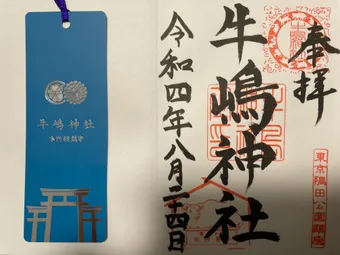 奉拝
牛嶋神社
令和四年八月二十四日
東京隅田公園鎮座
牛嶋神社